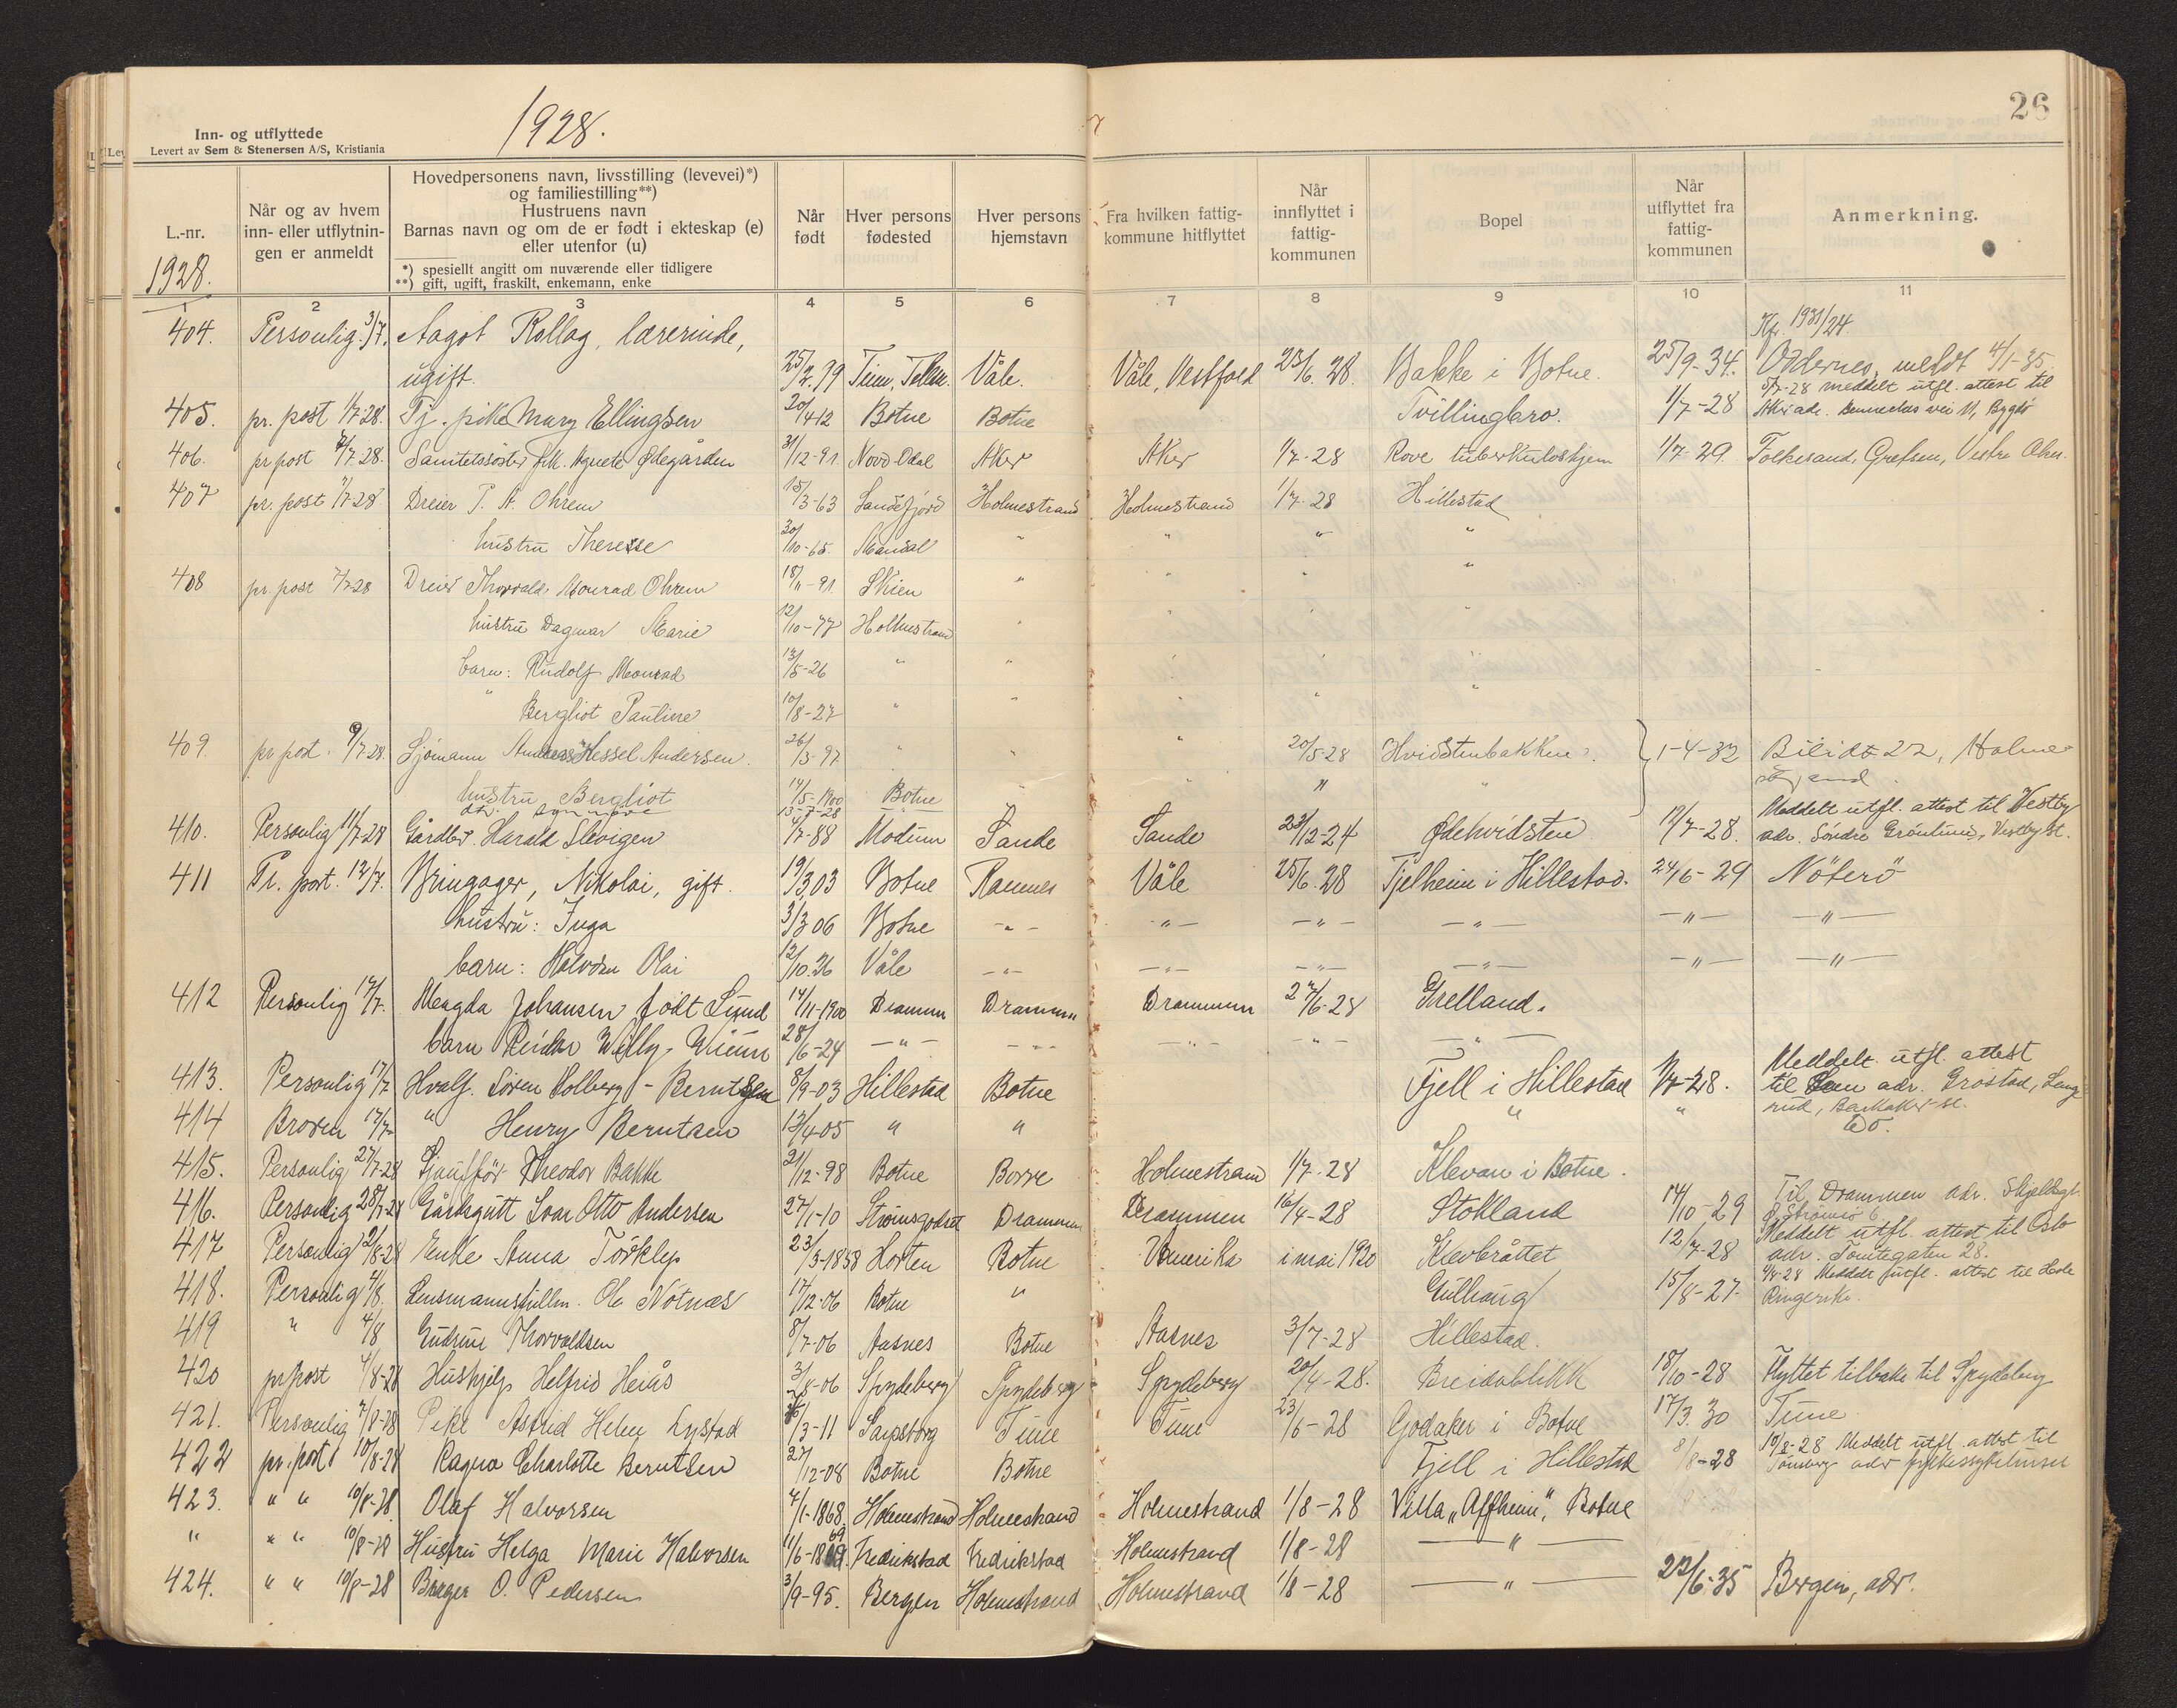 26
1928.
Inn- og utflyttede
Levert av Sem & Stenersen A/S, Kristiania
L.-nr.
1928.
Når og av hvem
inn- eller utflytnin-
gen er anmeldt
Hovedpersonens navn, livsstilling (levevei)*)
og familiestilling**)
Hustruens navn
Barnas navn og om de er født i ekteskap (e)
eller utenfor (u)
*) spesiellt angitt om nuværende eller tidligere
**) gift, ugift, fraskilt, enkemann, enke
Når
født
Hver persons
fødested
Hver persons
hjemstavn
Fra hvilken fattig-
kommune hitflyttet
Når
innflyttet i
fattig-
kommunen
Bopel
Når
utflyttet fra
fattig-
kommunen
Anmerkning.
1 2 3 4 5 6 7 8 9 10 11
404. Personlig 3/7. Aagot Rollag, lærerinde, Kfr. 1931/24
ugift. 25/2.99 Tinn, Telem. Våle. Våle, Vestfold 25/6.28. Bakke i Botne. 25/9-34. Oddernes, meldt 4/1-35.
405. pr. post 1/7-28. Tj. pike Mary Ellingsen 20/4-12 Botne Botne Tvillingbro. 1/7-28 5/7-28 meddelt utfl. attest til
Aker adr. vei 11, Bygdö
406. pr post 7/7-28. Sanitetssöster frk. Agnete Ødegården 31/12-91. Nord-Odal Aker Aker 1/7-28 Rove tuberkuloshjem 1/7-29. Grefsen, Vestre Aker.
407 pr. post 7/7-28 Dreier P. A. Ohren 15/3-63 Sandefjord Holmestrand Holmestrand 1/7-28 Hillestad
hustru Therese 30/10-65. Mandal " " " "
408 pr. post 7/7-28 Dreier Thorvald Monrad Ohren 18/11-91 Skien " " "
hustru Dagmar Marie 12/10-97 Holmestrand " " " "
barn: Rudolf Monrad 13/5-26 " " " " "
" Bergliot Pauline 10/8-27 " " " " "
409 pr post. 9/7-28 Sjömann Andreas Hessel Andersen. 26/3-97 " " " 20/5-28 Hvidstenbakken. 1-4-32 Bilidt 22, Holme-
strand
hustru Bergliot 14/5-1900 Botne " " " "
dtr. Synnöve 13-7-28
410. Personlig 11/7-28 Gårdbr. Harald Slevigen /7-88 Modum Sande Sande 23/12-24 Ødehvidsten 12/7-28. Meddelt utfl. attest til Vestby
adr. Söndre Grönlund, Vestby st.
411 Pr. post. 12/7. Bringager, Nikolai, gift. 19/3.03 Botne Ramnes Våle 25/6.28 Fjelheim i Hillestad. 24/6-29 Nöterö
hustru: Inga 3/3 06 Botne -"- -"- -"- -"- -"- -"-
barn: Halvdan Olai 12/10.26 Våle -"- -"- -"- -"- -"- -"-
412 Personlig 17/7. Magda Johansen født Lund 14/11-1900 Drammen Drammen Drammen 27/6-28 Grelland.
barn Reidar Willy 28/6-24 -"- -"- -"- -"- -"-
413. Personlig 17/7 Hvalf. Sören Holberg - Berntsen 8/9-03 Hillestad Botne Fjell i Hillestad 1/7-28. Meddelt utfl. attest
til Sem adr. Gröstad, Seng
rud, Barkaker st.
414 Broren 17/7 " Henry Berntsen 13/4-05 " " " " Do.
415. Personlig 27/7-28 Sjauffør Theodor Bakke 21/12-98 Botne Borre Holmestrand 1/7-28 Klevan i Botne.
416. Personlig 28/7-28 Gårdsgutt Ivar Otto Andersen 27/1-10 Strömsgodset Drammen Drammen 16/4-28 Stokland 14/10-29 Til Drammen adr.
Strömsö 6
417 Personlig 2/8-28 Enke Anna Törklep 23/3-1858 Horten Botne Amerika i mai 1920 Klevbråttet 12/7-28 Meddelt utfl. attest til Oslo
adr. Tomtegaten 28.
418. Personlig 4/8. Lensmannsfullm. Ole Nötnæs 17/12-06 Botne " Gullhaug 15/8-27. 4/8-28 Meddelt utfl. attest til Hole
Ringerike.
419 " 4/8 Gudrun Thorvaldsen 8/7-06 Aasnes Botne Aasnes 3/7-28 Hillestad.
420 pr post 4/8-28 Hushjelp Helfrid Heiås 3/8-06 Spydeberg Spydeberg Spydeberg 20/4-28. Breidablikk 18/10-28 Flyttet tilbake til Spydeberg
421. Personlig 7/8-28 Pike Astrid Helen Lystad /3-11 Sarpsborg Tune Tune 23/6-28 Godaker i Botne 17/3.30 Tune
422 pr. post 10/8-28 Ragna Charlotte Berntsen 27/12-08 Botne Botne Fjell i Hillestad 8/8-28 10/8-28 Meddelt utfl. attest til
Tönsberg adr fylkessykehuset
423. " " 10/8-28 Olaf Halvorsen 7/1-1868. Holmestrand Holmestrand Holmestrand 1/8-28 Villa „Affheim", Botne
" " " 10/8-28 Hustru Helga Marie Halvorsen 11/6-1869. Fredrikstad Fredrikstad Holmestrand 1/8-28 "
424. " " 10/8-28 Birger O. Pedersen 3/9-95. Bergen Holmestrand Holmestrand 1/8-28 " 22/6-35 Bergen, adr.